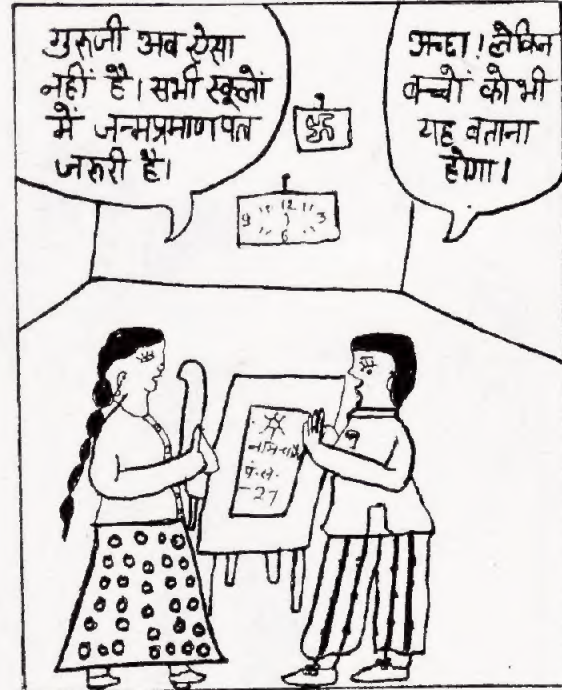 गुरुजी अब ऐसा
नहीं है। सभी स्कूलों
में जन्मप्रमाणपत्र
जरुरी है।
अच्छा! लेकिन
बच्चों को भी
यह बताना
होगा।
ॐ
11 12 1
9 3
6
-27